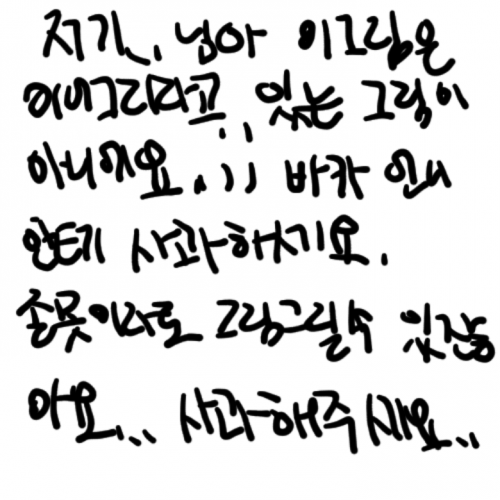 저기.. 님아 이그림은
이비그리라고,, 있는 그림이
아니에요.,,, 바카 언니
안테기 사과하시기요.
졸못이라로 그림그릴수 있잖
아요... 사과해주세요..